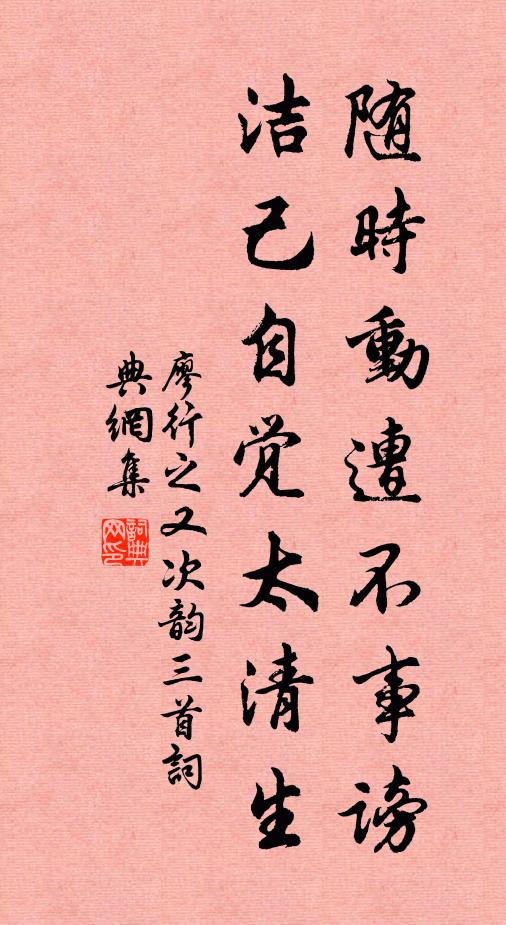 随時動遭不事謗
洁己自觉太清生
廖行之又次韵三首詞
典網集
詞典网印